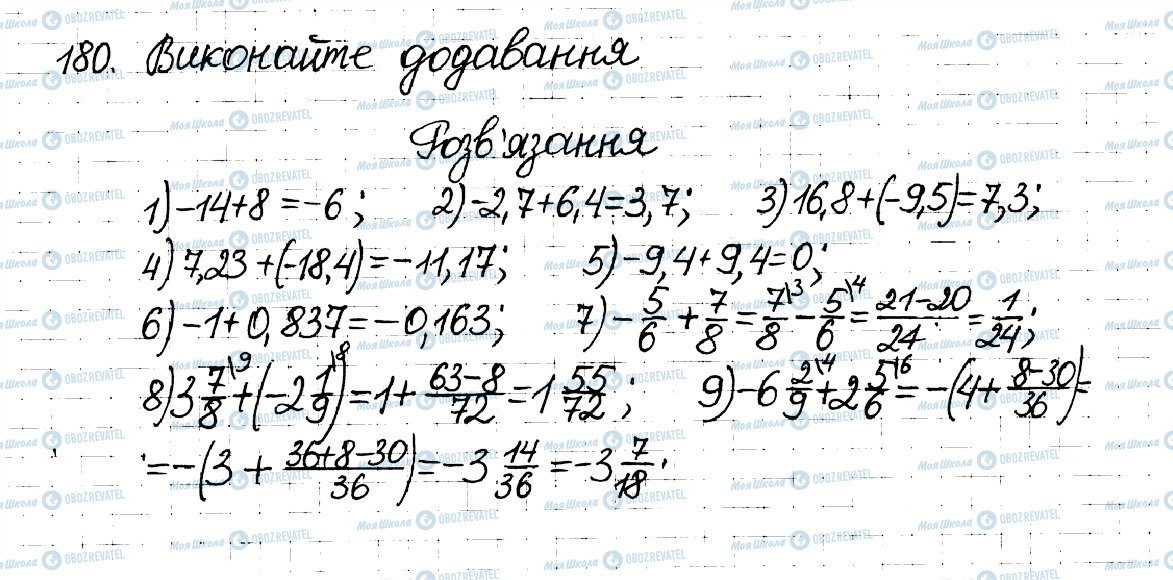 180. Виконайте додавання
Розв'язання
1) -14+8 = -6; 2) -2,7+6,4=3,7; 3) 16,8+(-9,5)=7,3;
4) 7,23+(-18,4)=-11,17; 5) -9,4+9,4=0;
6) -1+0,837=-0,163; 7) -5/6 + 7/8 = 7\3/8 - 5\4/6 = 21-20/24 = 1/24;
8) 3 7\9/8 + (-2 1\8/9) = 1+ 63-8/72 = 1 55/72; 9) -6 2\4/9 + 2 5\6/6 = -(4+ 8-30/36) =
= -(3 + 36+8-30/36) = -3 14/36 = -3 7/18.